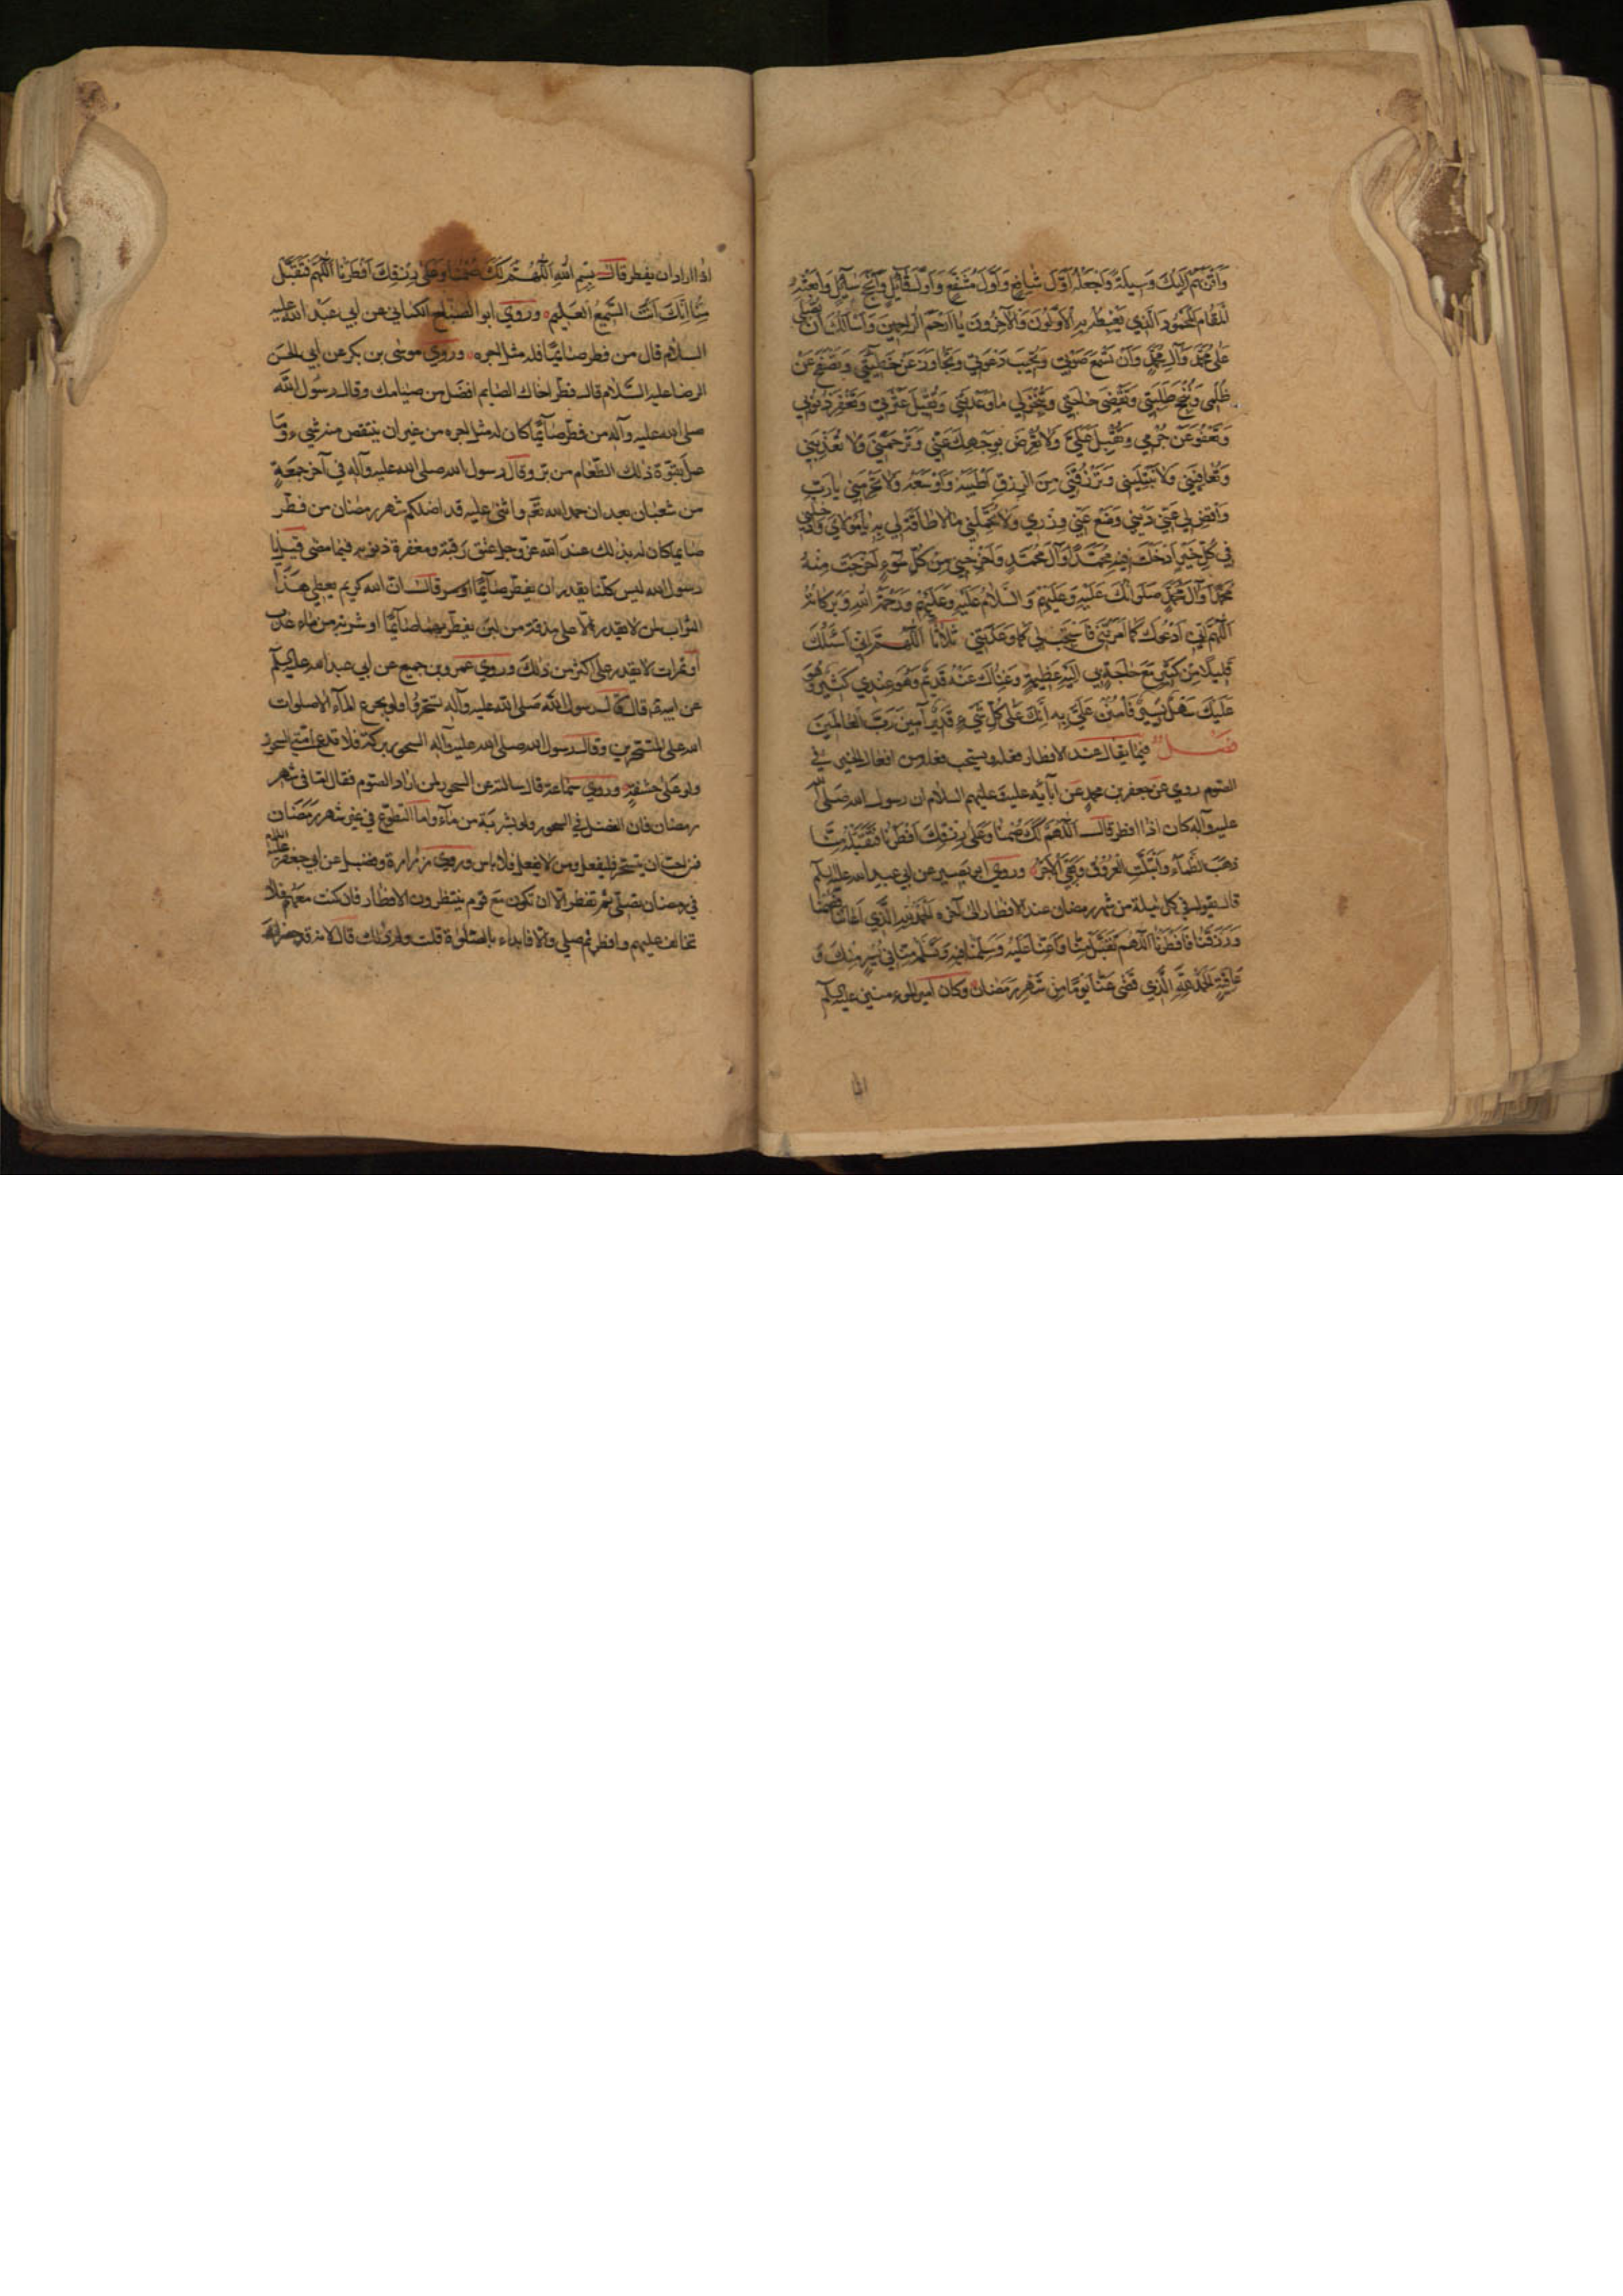 وَاَقْرَبَهُمْ اِلَيْكَ وَسيلَةً وَاجْعَلْهُ اَوَّلَ شافِعٍ وَاَوَّلَ مُشَفَّعٍ وَاَوَّلَ قائِلٍ وَاَنْجَحَ سائِلٍ وَابْعَثْهُ
المَقامَ المَحْمُودَ الَّذي يَغْبِطُهُ بِهِ الاَوَّلُونَ وَالآخِرُونَ يا اَرْحَمَ الرّاحِمينَ وَاَسْاَلُكَ اَنْ تُصَلِّيَ
عَلى مُحَمَّدٍ وَآلِ مُحَمَّدٍ وَاَنْ تَسْمَعَ صَوْتي وَتُجيبَ دَعْوَتي وَتَجاوَزَ عَنْ خَطيئَتي وَتَصْفَحَ عَنْ
ظُلْمي وَتُنْجِحَ طَلِبَتي وَتَقْضِيَ حاجَتي وَتُنْجِزَ لي ما وَعَدْتَني وَتُقيلَ عَثْرَتي وَتَغْفِرَ ذُنُوبي
وَتَعْفُوَ عَنْ جُرْمي وَتُقْبِلَ عَلَيَّ وَلا تُعْرِضَ بِوَجْهِكَ عَنّي وَتَرْحَمَني وَلا تُعَذِّبَني
وَتُعافِيَني وَلا تَبْتَلِيَني وَتَرْزُقَني مِنَ الرِّزْقِ اَطْيَبَهُ وَاَوْسَعَهُ وَلا تَحْرِمَني يا رَبِّ
وَاقْضِ لي عَنّي دَيْني وَضَعْ عَنّي وِزْري وَلا تُحَمِّلْني ما لا طاقَةَ لي بِهِ يا مَوْلايَ وَاَدْخِلْني
في كُلِّ خَيْرٍ اَدْخَلْتَ فيهِ مُحَمَّداً وَآلَ مُحَمَّدٍ وَاَخْرِجْني مِنْ كُلِّ سُوءٍ اَخْرَجْتَ مِنْهُ
مُحَمَّداً وَآلَ مُحَمَّدٍ صَلَواتُكَ عَلَيْهِ وَعَلَيْهِمْ وَالسَّلامُ عَلَيْهِ وَعَلَيْهِمْ وَرَحْمَةُ اللهِ وَبَرَكاتُهُ
اَللّهُمَّ اِنّي اَدْعُوكَ كَما اَمَرْتَني فَاسْتَجِبْ لي كَما وَعَدْتَني ثلاثا اَللّهُمَّ اِنّي اَسْئَلُكَ
قَليلاً مِنْ كَثيرٍ مَعَ حاجَةٍ بي اِلَيْهِ عَظيمَةٍ وَغِناكَ عَنْهُ قَديمٌ وَهُوَ عِنْدي كَثيرٌ وَهُوَ
عَلَيْكَ سَهْلٌ يَسيرٌ فَامْنُنْ عَلَيَّ بِهِ اِنَّكَ عَلى كُلِّ شَيْءٍ قَديرٌ آمينَ رَبَّ العالَمينَ
فصل فيما يقال عند الافطار فعله ويستحب فعله من افعال الخير في
الصوم روي عن جعفر بن محمد عن آبائه عليه عليهم السلام ان رسول الله صلى الله
عليه وآله كان اذا افطر قال اَللّهُمَّ لَكَ صُمْنا وَعَلى رِزْقِكَ اَفْطَرْنا فَتَقَبَّلْهُ مِنّا
ذَهَبَ الظَّمَاءُ وَابْتَلَّتِ العُرُوقُ وَبَقِيَ الاَجْرُ وروي ابو بصير عن ابي عبد الله عليه السلم
قال يقول في كل ليلة من شهر رمضان عند الافطار الى آخره اَلْحَمْدُ لِلّهِ الَّذي اَعانَنا فَصُمْنا
وَرَزَقَنا فَاَفْطَرْنا اَللّهُمَّ تَقَبَّلْ مِنّا وَاَعِنّا عَلَيْهِ وَسَلِّمْنا فيهِ وَتَسَلَّمْهُ مِنّا في يُسْرٍ مِنْكَ وَ
عافِيَةٍ الحَمْدُ لِلّهِ الَّذي قَضى عَنّا يَوْماً مِنْ شَهْرِ رَمَضانَ وكان امير المومنين عليه السلم
اذا اراد ان يفطر قال بِسْمِ اللهِ اَللّهُمَّ لَكَ صُمْنا وَعَلى رِزْقِكَ اَفْطَرْنا اَللّهُمَّ فَتَقَبَّلْ
مِنّا اِنَّكَ اَنْتَ السَّميعُ العَليمُ وروي ابو الصباح الكناني عن ابي عبد الله عليه
السلام قال من فطر صائما فله مثل اجره وروي موسى بن بكر عن ابي الحسن
الرضا عليه السلام قال فطر اخاك الصايم افضل من صيامك وقال رسول الله
صلى الله عليه وآله من فطر صائما كان له مثل اجره من غير ان ينتقص منه شيء وما
عمل بقوة ذلك الطعام من بر وقال رسول الله صلى الله عليه وآله في آخر جمعة
من شعبان بعد ان حمد الله واثنى عليه قد اضلكم شهر رمضان من فطر
صايما كان له بذلك عند الله عز وجل عتق رقبة ومغفرة ذنوبه فيما مضى قيل يا
رسول الله ليس كلنا يقدر ان يفطر صائما قال ان الله كريم يعطي هذا
الثواب لمن لا يقدر الا على مذقة من لبن يفطر بها صائما او شربة من ماء عذب
او تمرات لا يقدر على اكثر من ذلك وروي عمرو بن جميع عن ابي عبد الله عليه السلم
عن ابيه قال قال رسول الله صلى الله عليه وآله تسحروا ولو بجرع الماء الا صلوات
الله على المتسحرين وقال رسول الله صلى الله عليه وآله السحور بركة فلا تدع امتي السحور
ولو على حشفة وروي سماعة قال سالته عن السحور لمن اراد الصوم فقال اما في شهر
رمضان فان الفضل في السحور ولو بشربة من ماء واما التطوع في غير شهر رمضان
فمن احب ان يتسحر فليفعل ومن لا يفعل فلا باس وروي زرارة وفضيل عن ابي جعفر عليه السلم
في رمضان تصلي ثم تفطر الا ان تكون مع قوم ينتظرون الافطار فان كنت معهم فلا
تخالف عليهم وافطر ثم صلي والا فابداء بالصلوة قلت ولم ذلك قال لانه قد حضرك